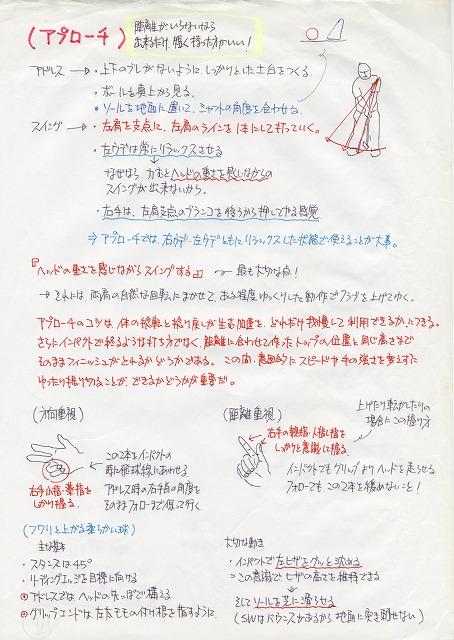 (アプローチ)
距離がいらないなら
出来るだけ短く持った方がいい!
アドレス → ・上下のブレがないように、しっかりとした土台をつくる
・ボールを真上から見る。
・ソールを地面に置いて、シャフトの角度を合わせる。
スイング → ・左肩を支点に、左肩のラインを1本にして打っていく。
・左ウデは常にリラックスさせる
なぜなら、力むとヘッドの重さを感じながらの
スイングが出来ないから。
・右手は、左肩支点のブランコを後ろから押してやる感覚
⇒ アプローチでは、右ウデ・左ウデともにリラックスした状態で使えることが大事。
『ヘッドの重さを感じながらスイングする』 ← 最も大切な点!
→ それには、両肩の自然な回転にまかせて、ある程度ゆっくりした動作でクラブを上げてゆく。
アプローチのコツは、体の捻転と捻り戻しが生む加速を、どれだけ我慢して利用できるか、につきる。
さらにインパクトで終るような打ち方でなく、距離に合わせて作ったトップの位置と同じ高さまで
そのままフィニッシュがとれるかどうかである。この間、意図的にスピードや手の強さを変えずに
ゆったり振り切ることが、できるかどうかが重要だ。
(方向重視)
この2本をインパクトの
時に飛球線にあわせる
アドレス時の右手首の角度を
そのままフォローまで保って行く
右手小指・薬指を
しっかり握る。
(距離重視)
上げたり転がしたりの
場合にこの握り方
右手の親指・人指し指を
しっかりと意識して握る。
インパクトでもグリップよりヘッドを走らせる
フォローでも、この2本を緩めないこと!
(フワリと上がる柔らかい球)
主な基本
・スタンスは45°
・リーディングエッジを目標に向ける
・アドレスではヘッドの先っぽで構える
・グリップエンドは左太ももの付け根を指すように
大切な動き
・インパクトで左ヒザをグッと沈める
=この意識で、ヒザの高さを維持できる
そしてソールを芝に滑らせる
(SWはバウンスがあるから地面に突き刺せない)